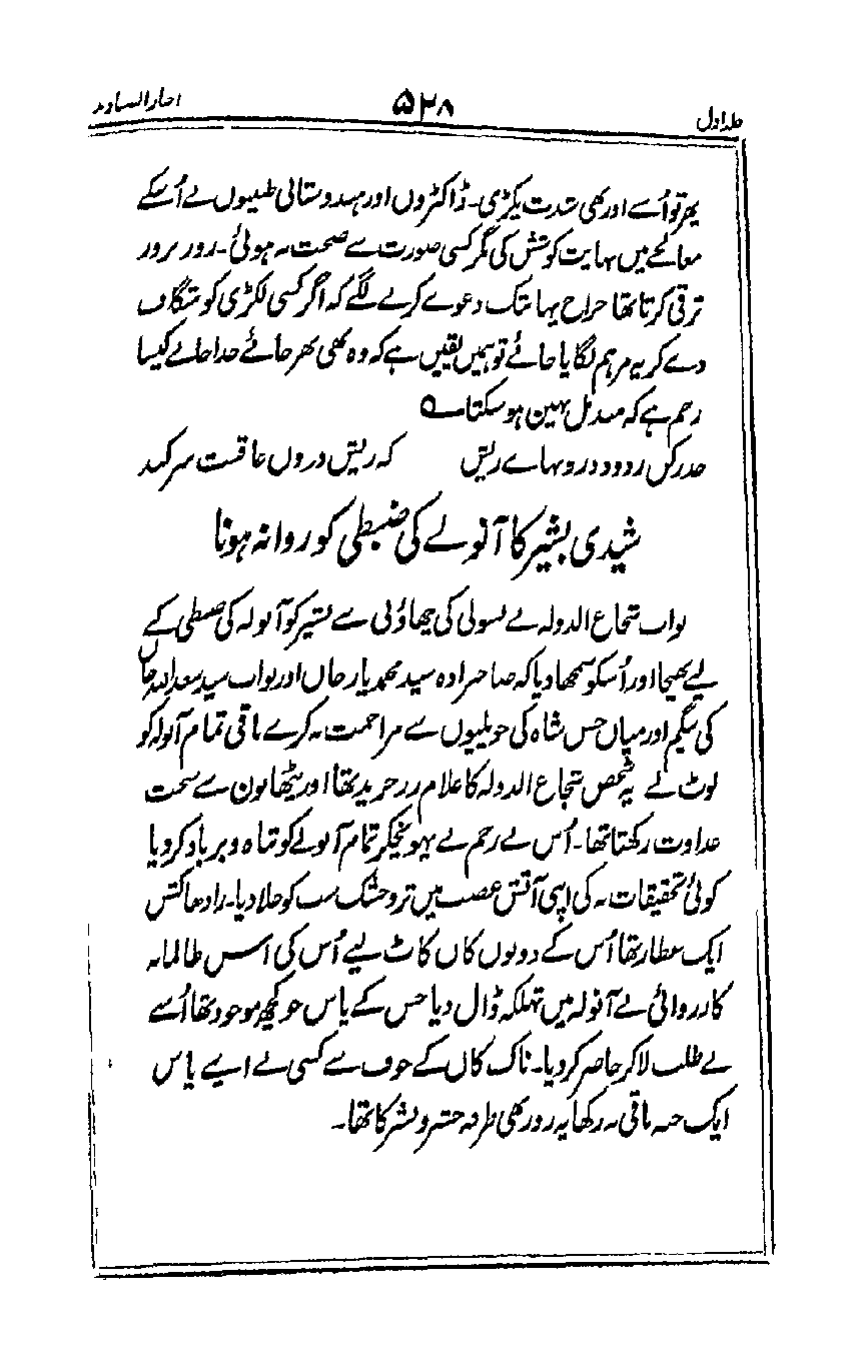 جلد اول ۵۳۸ اخبار الصنادید
پھر تو اُسے اور بھی شدت پکڑی۔ ڈاکٹروں اور ہندوستانی طبیبوں نے اُسکے
معالجے میں نہایت کوشش کی مگر کسی صورت سے صحت نہ ہوئی۔ روز بروز
ترقی کرتا تھا جراح یہانتک دعوے کرنے لگے کہ اگر کسی لکڑی کو شگاف
دے کر یہ مرہم لگایا جائے تو ہمیں یقین ہے کہ وہ بھی بھر جائے خدا جانے کیسا
زخم ہے کہ مندمل نہین ہو سکتا ؎
حذر کن ز دود درونہاے ریش کہ ریش دروں عاقبت سر کند
شیدی بشیر کا آنولے کی ضبطی کو روانہ ہونا
نواب شجاع الدولہ نے بسولی کی چھاؤنی سے بشیر کو آنولہ کی ضبطی کے
لیے بھیجا اور اُسکو سمجھا دیا کہ صاحبزادہ سید محمد یار خاں اور نواب سید سعد اللہ خاں
کی بیگم اور میاں حسن شاہ کی حویلیوں سے مزاحمت نہ کرے باقی تمام آنولہ کو
لوٹ لے یہ شخص شجاع الدولہ کا غلام زر خرید تھا اور پٹھانون سے سخت
عداوت رکھتا تھا۔ اُس بے رحم نے پہونچکر تمام آنولے کو تباہ و برباد کر دیا
کوئی تحقیقات نہ کی اپنی آتش غضب میں تر و خشک سب کو جلا دیا۔ رادھا کشن
ایک عطار تھا اُس کے دونوں کان کاٹ لیے اُس کی اس ظالمانہ
کارروائی نے آنولہ میں تہلکہ ڈال دیا جس کے پاس جو کچھ موجود تھا اُسے
بے طلب لا کر حاضر کر دیا۔ ناک کان کے خوف سے کسی نے اپنے پاس
ایک حبہ باقی نہ رکھا یہ روز بھی طرفہ حشر و نشر کا تھا۔